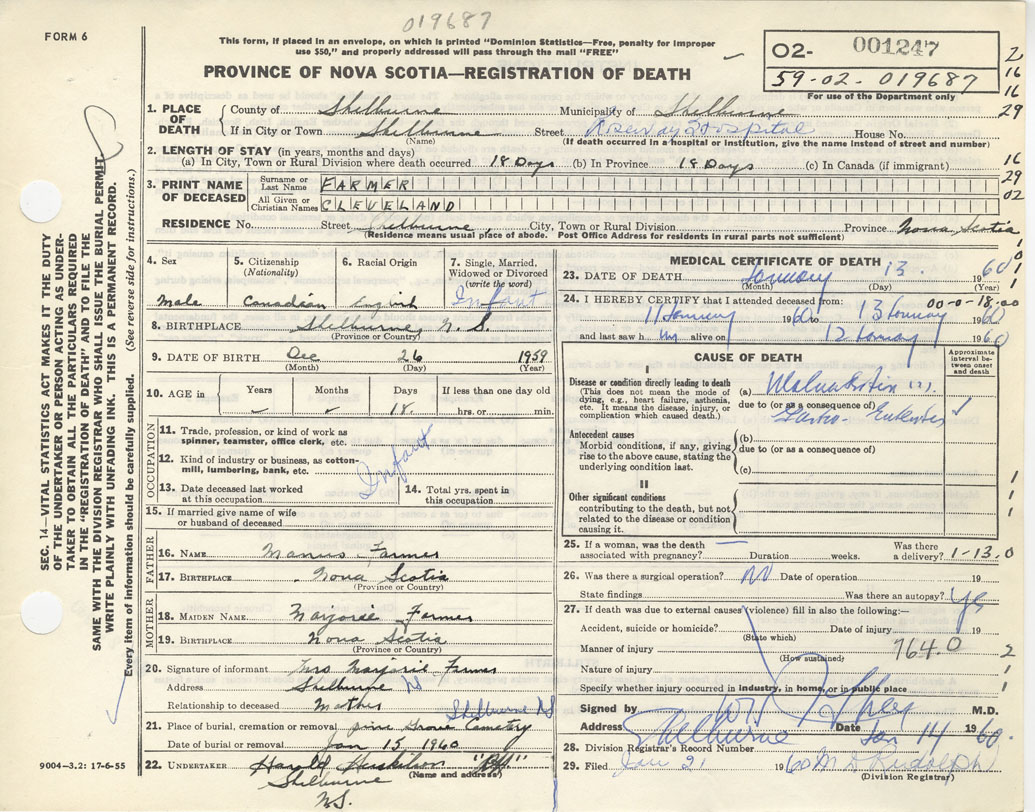 019687
FORM 6
This form, if placed in an envelope, on which is printed "Dominion Statistics—Free, penalty for improper
use $50," and properly addressed will pass through the mail "FREE"
02- 001247
59-02-019687
For use of the Department only
PROVINCE OF NOVA SCOTIA—REGISTRATION OF DEATH
2
16
16
29
16
29
02
1. PLACE OF DEATH
County of Shelburne Municipality of Shelburne
If in City or Town Shelburne Street Roseway Hospital House No.
(Name) (If death occurred in a hospital or institution, give the name instead of street and number)
2. LENGTH OF STAY (in years, months and days)
(a) In City, Town or Rural Division where death occurred 18 Days (b) In Province 18 Days (c) In Canada (if immigrant)
3. PRINT NAME OF DECEASED
Surname or Last Name FARMER
All Given or Christian Names CLEVELAND
RESIDENCE No. Street Shelburne, City, Town or Rural Division Province Nova Scotia
(Residence means usual place of abode. Post Office Address for residents in rural parts not sufficient)
4. Sex
Male
5. Citizenship (Nationality)
Canadian
6. Racial Origin
English
7. Single, Married, Widowed or Divorced (write the word)
Infant
8. BIRTHPLACE Shelburne, N.S.
(Province or Country)
9. DATE OF BIRTH Dec 26 1959
(Month) (Day) (Year)
10. AGE in Years Months Days If less than one day old
18 hrs. or min.
OCCUPATION
11. Trade, profession or kind of work as spinner, teamster, office clerk, etc.
12. Kind of industry or business, as cotton-mill, lumbering, bank, etc.
Infant
13. Date deceased last worked at this occupation
14. Total yrs. spent in this occupation
15. If married give name of wife or husband of deceased
FATHER
16. NAME Farmer
17. BIRTHPLACE Nova Scotia
(Province or Country)
MOTHER
18. MAIDEN NAME Marjorie Farmer
19. BIRTHPLACE Nova Scotia
(Province or Country)
20. Signature of informant Mrs Marjorie Farmer
Address Shelburne NS
Relationship to deceased Mother
21. Place of burial, cremation or removal Pine Grove Cemetry Shelburne NS
Date of burial or removal Jan 15, 1960
22. UNDERTAKER Harold
(Name and address)
Shelburne
N.S.
MEDICAL CERTIFICATE OF DEATH
23. DATE OF DEATH January 13 1960
(Month) (Day) (Year)
24. I HEREBY CERTIFY that I attended deceased from: 00-0-18,00
11 January 1960 to 13 January 1960
and last saw him alive on 12 January 1960
CAUSE OF DEATH
Approximate interval between onset and death
I
Disease or condition directly leading to death
(This does not mean the mode of dying, e.g., heart failure, asthenia, etc. It means the disease, injury, or complication which caused death.)
(a) Malnutrition
due to (or as a consequence of)
Gastro-Enteritis
Antecedent causes
Morbid conditions, if any, giving rise to the above cause, stating the underlying condition last.
(b)
due to (or as a consequence of)
(c)
II
Other significant conditions
contributing to the death, but not related to the disease or condition causing it.
25. If a woman, was the death associated with pregnancy? Duration weeks. Was there a delivery? 1-13.0
26. Was there a surgical operation? No Date of operation 19
State findings Was there an autopsy? Yes
27. If death was due to external causes (violence) fill in also the following:—
Accident, suicide or homicide? Date of injury 19
(State which)
Manner of injury 764.0
(How sustained)
2
Nature of injury
Specify whether injury occurred in industry, in home, or in public place
Signed by M.D.
Address Shelburne Date Jan 14 1960.
28. Division Registrar's Record Number
29. Filed Jan 21 1960 M D Rudolph
(Division Registrar)
SEC. 14—VITAL STATISTICS ACT MAKES IT THE DUTY
OF THE UNDERTAKER OR PERSON ACTING AS UNDER-
TAKER TO OBTAIN ALL THE PARTICULARS REQUIRED
IN THE "REGISTRATION OF DEATH" AND TO FILE THE
SAME WITH THE DIVISION REGISTRAR WHO SHALL ISSUE THE BURIAL PERMIT
WRITE PLAINLY WITH UNFADING INK. THIS IS A PERMANENT RECORD.
Every item of information should be carefully supplied. (See reverse side for instructions.)
9004-3.2: 17-6-55